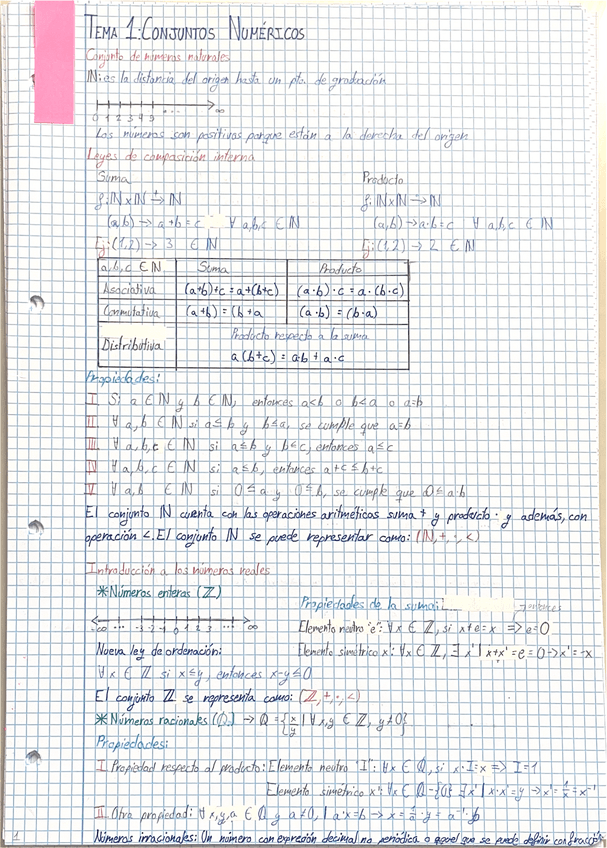 TEMA 1: CONJUNTOS NUMÉRICOS
Conjunto de números naturales
ℕ: es la distancia del origen hasta un pto. de gradación
0 1 2 3 4 5 ... ∞
Los números son positivos porque están a la derecha del origen
Leyes de composición interna
Suma Producto
f: ℕ x ℕ →⁺ ℕ f: ℕ x ℕ →˙ ℕ
(a,b) → a+b=c ∀ a,b,c ∈ ℕ (a,b) → a·b=c ∀ a,b,c ∈ ℕ
Ej: (1,2) → 3 ∈ ℕ Ej: (1,2) → 2 ∈ ℕ
a, b, c ∈ ℕ Suma Producto
Asociativa (a+b)+c = a+(b+c) (a·b)·c = a·(b·c)
Conmutativa (a+b) = (b+a (a·b) = (b·a)
Distributiva Producto respecto a la suma
a(b+c) = a·b + a·c
Propiedades:
I Si a ∈ ℕ y b ∈ ℕ, entonces a<b o b<a o a=b
II ∀ a, b ∈ ℕ si a≤b y b≤a, se cumple que a=b
III ∀ a, b, c ∈ ℕ si a≤b y b≤c, entonces a≤c
IV ∀ a, b, c ∈ ℕ si a≤b, entonces a+c≤b+c
V ∀ a, b ∈ ℕ si 0≤a y 0≤b, se cumple que 0≤a·b
El conjunto ℕ cuenta con las operaciones aritméticas suma + y producto · y además, con
operación <. El conjunto ℕ se puede representar como: (ℕ, +, ·, <)
Introducción a los números reales
* Números enteros (ℤ)
Propiedades de la suma: entonces
-∞ ... -3 -2 -1 0 1 2 3 ... ∞
Elemento neutro 'e': ∀x ∈ ℤ, si x+e=x ⇒ e=0
Nueva ley de ordenación:
Elemento simétrico x': ∀x ∈ ℤ, ∃ x' | x+x'=e=0 → x'=-x
∀x ∈ ℤ si x≤y, entonces x-y≤0
El conjunto ℤ se representa como: (ℤ, +, ·, <)
* Números racionales (ℚ) → ℚ = {x/y | ∀x,y ∈ ℤ, y≠0}
Propiedades:
I Propiedad respecto al producto: Elemento neutro "I": ∀x ∈ ℚ, si x·I=x ⇒ I=1
Elemento simétrico x': ∀x ∈ ℚ-{0} ∃x' | x·x'=y → x'=1/x=x⁻¹
II Otra propiedad: ∀x,y,a ∈ ℚ y a≠0, | a·x=b → x=1/a·y=a⁻¹·b
Números irracionales: Un número con expresión decimal no periódica o aquel que se puede definir con fracción
1